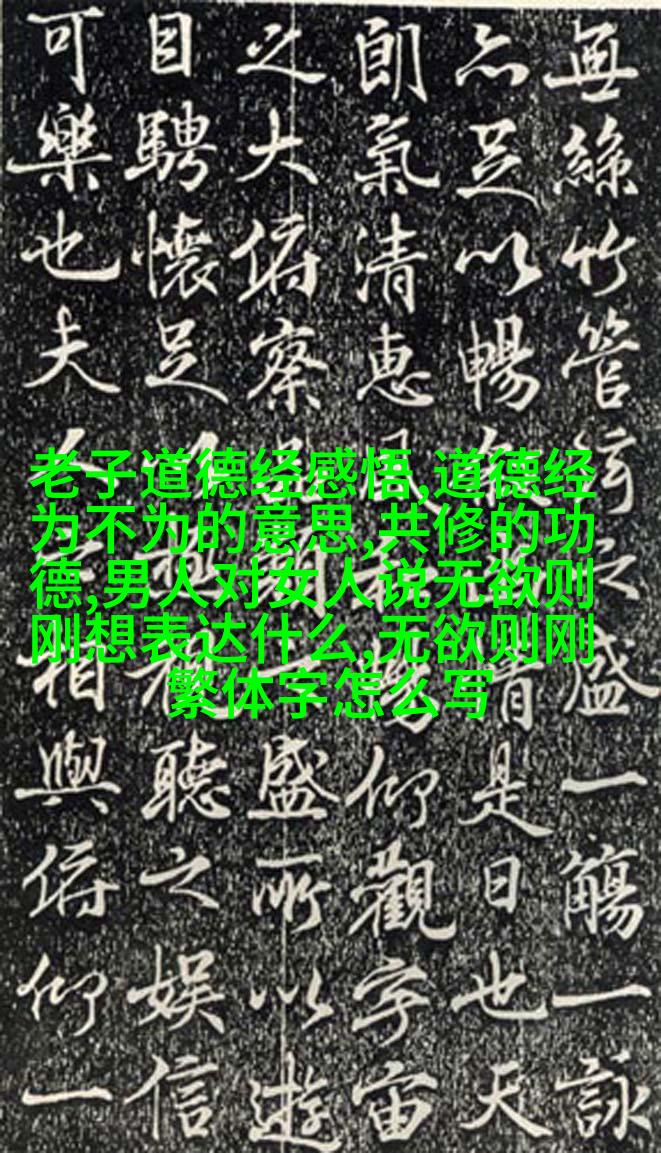 無絲竹管盛一觴一詠
亦足以暢是日也天
朗氣清惠仰觀宇宙
之大俯察盛所以遊
目騁懷足聽之娛信
可樂也夫相與俯仰一
老子道德经感悟,道德经
为不为的意思,共修的功
德,男人对女人说无欲则
刚想表达什么,无欲则刚
繁体字怎么写